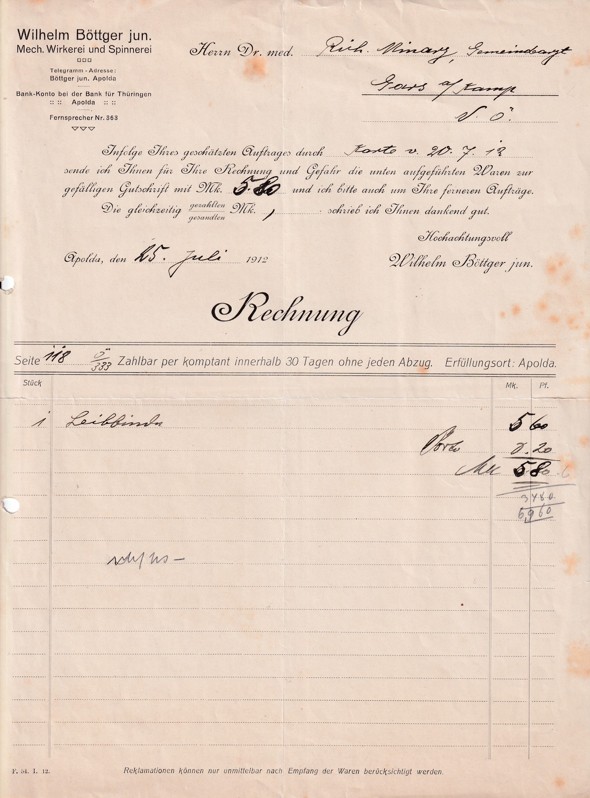 Wilhelm Böttger jun.
Mech. Wirkerei und Spinnerei
Telegramm-Adresse:
Böttger jun. Apolda
Bank-Konto bei der Bank für Thüringen
:: :: Apolda :: ::
Fernsprecher Nr. 363
Herrn Dr. med. Rich. Minarz, Gemeindearzt
Gars a/Kamp
N. Ö.
Infolge Ihres geschätzten Auftrages durch Karte v. 20.7.12
sende ich Ihnen für Ihre Rechnung und Gefahr die unten aufgeführten Waren zur
gefälligen Gutschrift mit Mk. 5.80 und ich bitte auch um Ihre ferneren Aufträge.
Die gleichzeitig gezahlten gesandten Mk. , schrieb ich Ihnen dankend gut.
Hochachtungsvoll
Apolda, den 25. Juli 1912
Wilhelm Böttger jun.
Rechnung
Seite 118 Ö/333 Zahlbar per komptant innerhalb 30 Tagen ohne jeden Abzug. Erfüllungsort: Apolda.
Stück Mk. Pf.
1 Leibbinde 5 60
Porto 0.20
Mk 5 80
3480
6960
F. 54. I. 12. Reklamationen können nur unmittelbar nach Empfang der Waren berücksichtigt werden.